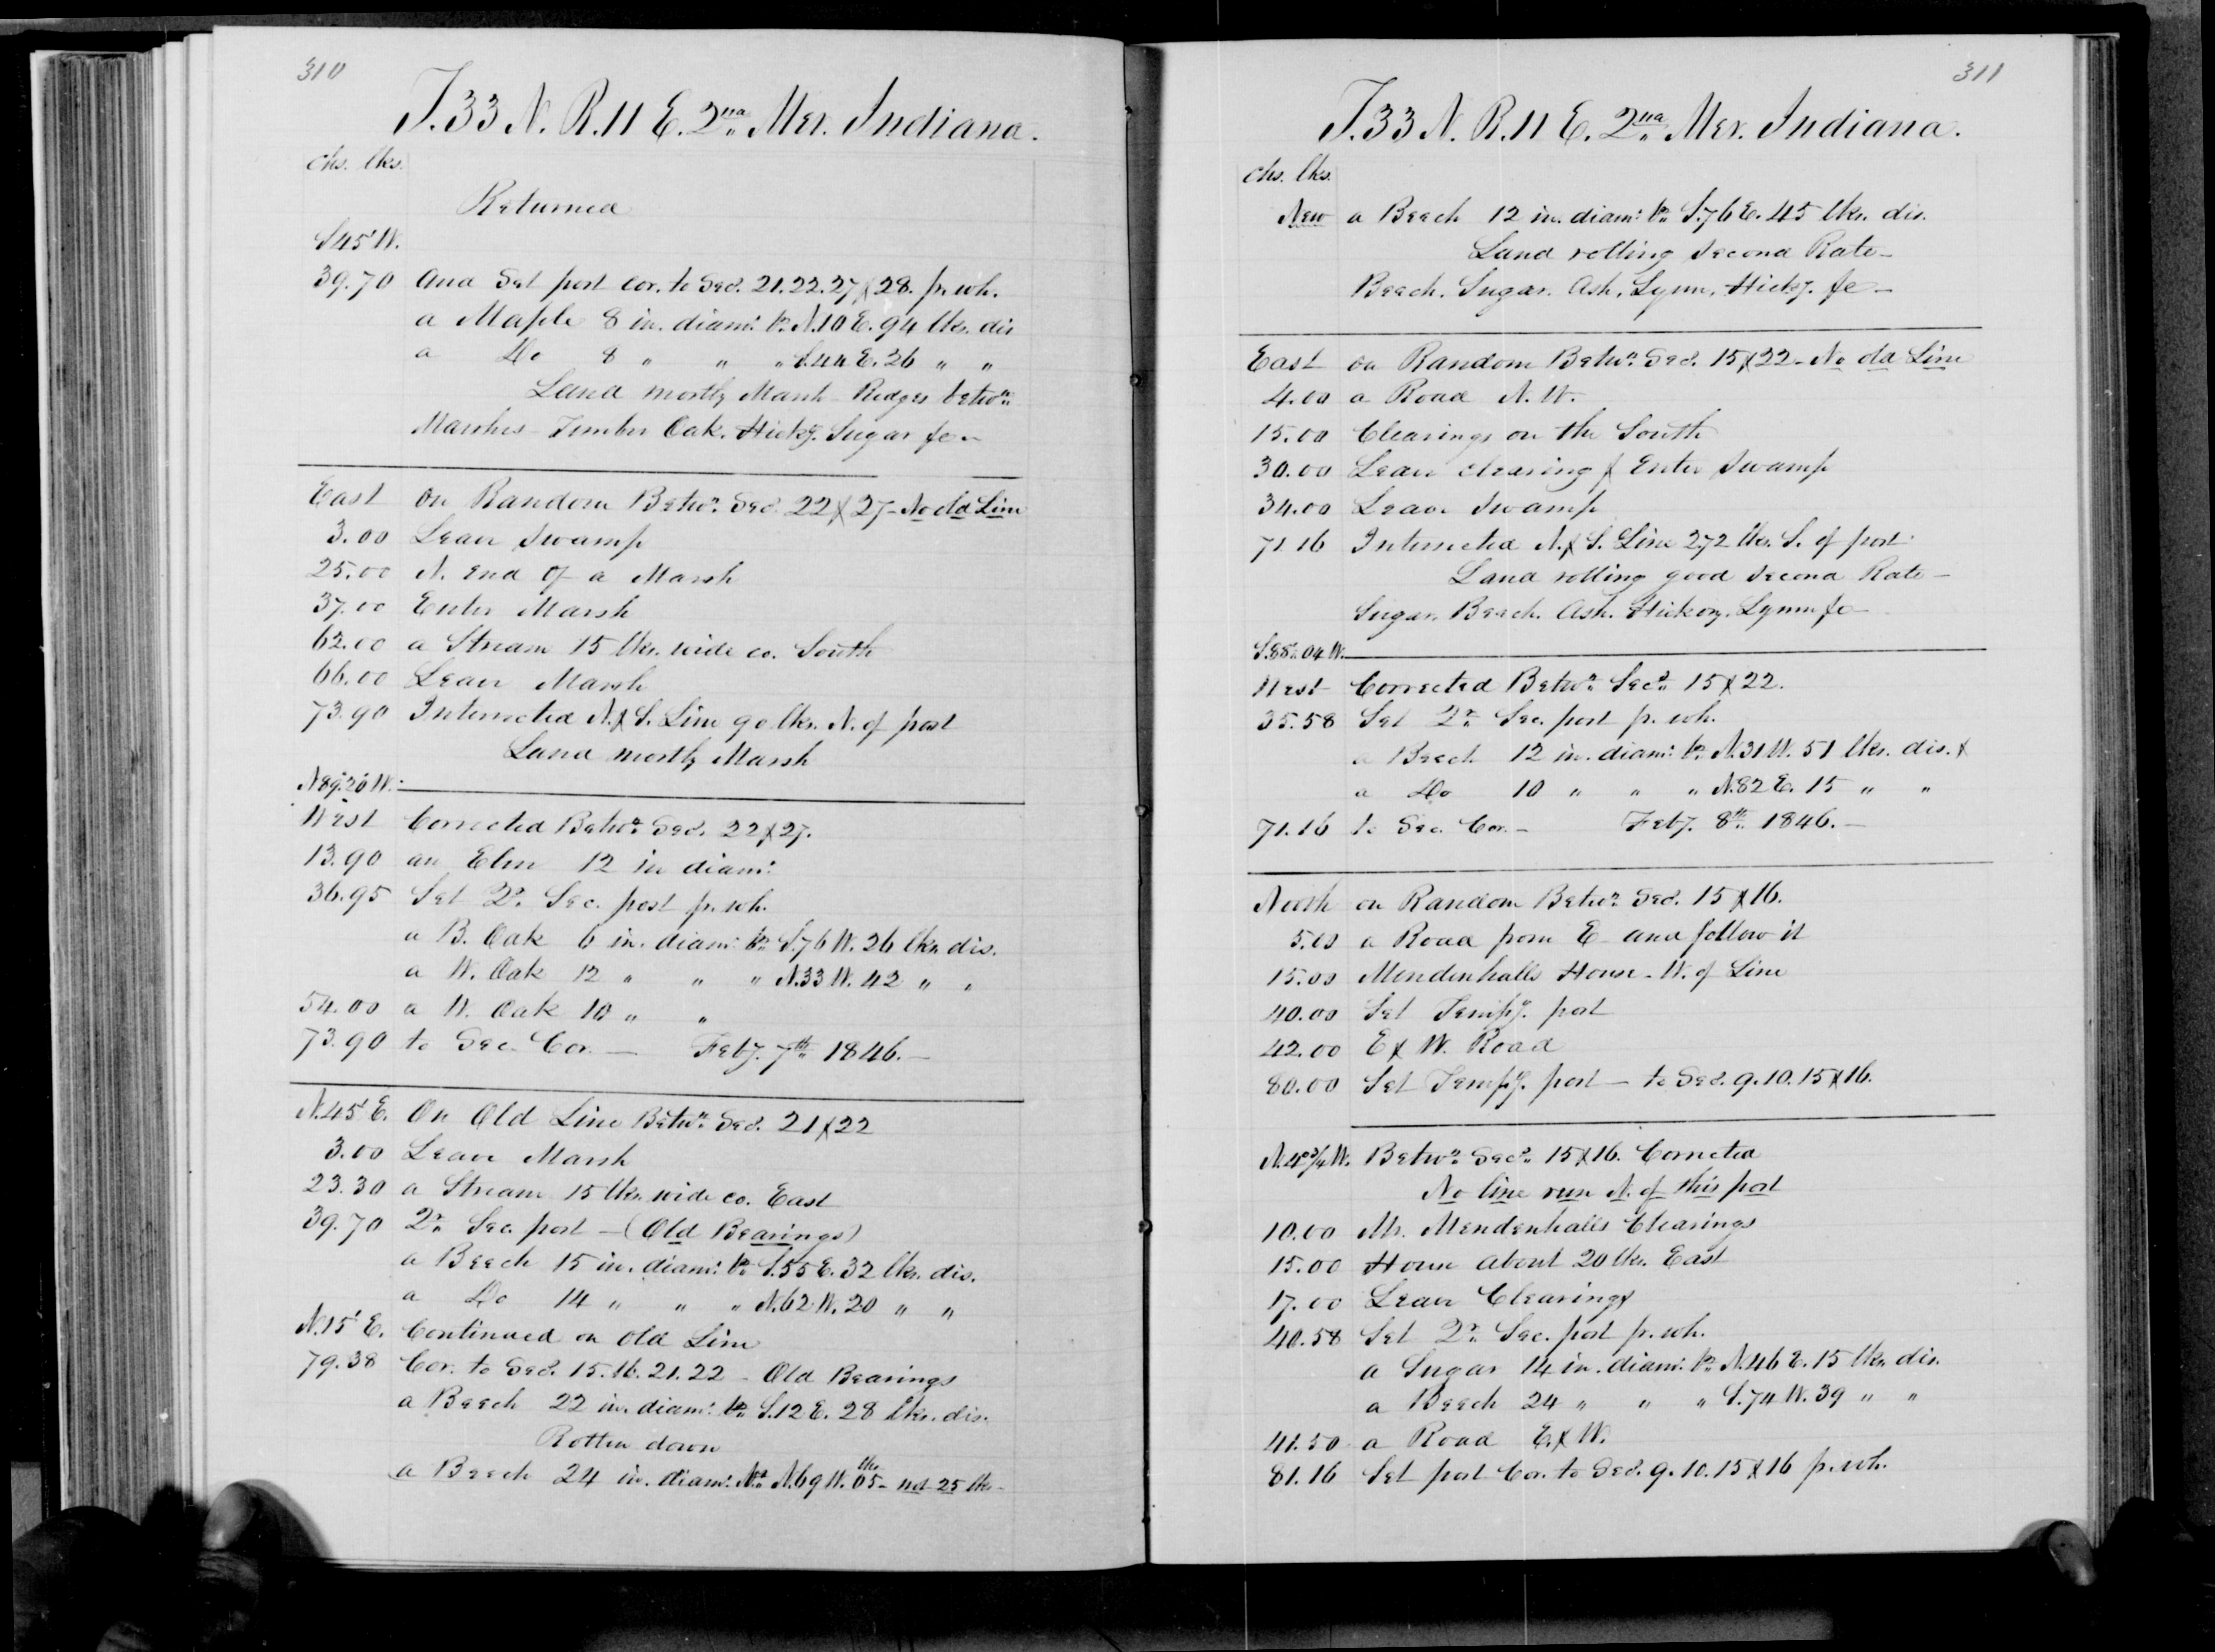 310
T. 33 N. R. 11 E. 2nd Mer. Indiana.
chs. lks.
Returned
S 45' W.
39.70 And Set post cor. to Secs. 21. 22. 27 & 28. pr. wh.
a Maple 8 in. diam: br. N. 10 E. 94 lks. dis
a Do 8 " " " S. 44 E. 26 " "
Land mostly Marsh Ridges betwn
Marshes Timber Oak. Hicky. Sugar &c
East on Random Betwn Secs. 22 & 27 - No old Line
3.00 Leave Swamp
25.00 N. End of a Marsh
37.00 Enter Marsh
62.00 a Stream 15 lks. wide co. South
66.00 Leave Marsh
73.90 Intersected N. & S. Line 90 lks. N. of post
Land mostly Marsh
N 89° 20' W.
West Corrected Betwn Secs. 22 & 27.
13.90 an Elm 12 in diam:
36.95 Set Qr. Sec. post pr. wh.
a B. Oak 6 in. diam: br. S. 76 W. 26 lks. dis.
a W. Oak 12 " " " N. 33 W. 42 " "
54.00 a W. Oak 10 " "
73.90 to Sec. Cor. — Feby. 7th 1846. —
N. 45' E. On Old Line Betwn Secs. 21 & 22
3.00 Leave Marsh
23.30 a Stream 15 lks. wide co. East
39.70 Qr. Sec. post - (Old Bearings)
a Beech 15 in. diam: br. S. 55 E. 32 lks. dis.
a Do 14 " " " N. 62 W. 20 " "
N. 15' E. Continued on Old Line
79.38 Cor. to Secs. 15. 16. 21. 22 - Old Bearings
a Beech 22 in. diam: br. S. 12 E. 28 lks. dis.
Rotten down
a Beech 24 in. diam: N. 69 W. 05 lks - not 25 lks -
311
T. 33 N. R. 11 E. 2nd Mer. Indiana.
chs. lks.
New a Beech 12 in. diam: br. S. 76 E. 45 lks. dis.
Land rolling Second Rate -
Beech. Sugar. Ash, Lynn, Hicky. &c -
East on Random Betwn Secs. 15 & 22 - No old Line
4.00 a Road N. W.
15.00 Clearings on the South
30.00 Leave clearing & Enter Swamp
34.00 Leave Swamp
71.16 Intersected N. & S. Line 272 lks. S. of post
Land rolling good Second Rate -
Sugar. Beech. Ash. Hickory. Lynn &c
S. 88° 04' W.
West Corrected Betwn Secs. 15 & 22.
35.58 Set Qr. Sec. post pr. wh.
a Beech 12 in. diam: br. N. 31 W. 51 lks. dis. &
a Do 10 " " " N. 82 E. 15 " "
71.16 to Sec. Cor. - Feby. 8th 1846. -
North on Random Betwn Secs. 15 & 16.
5.00 a Road from E and follow it
15.00 Mendenhalls House - W. of Line
40.00 Set Tempy. post
42.00 E & W. Road
80.00 Set Tempy. post - to Secs. 9. 10. 15 & 16.
N. 4° 3/4 W. Betwn Secs. 15 & 16. Corrected
No line run N. of this post
10.00 Mr. Mendenhalls Clearings
15.00 House about 20 lks. East
17.00 Leave Clearings
40.58 Set Qr. Sec. post pr. wh.
a Sugar 14 in. diam: br. N. 46 E. 15 lks. dis.
a Beech 24 " " " S. 74 W. 39 " "
41.50 a Road E. & W.
81.16 Set post Cor. to Secs. 9. 10. 15 & 16 pr. wh.